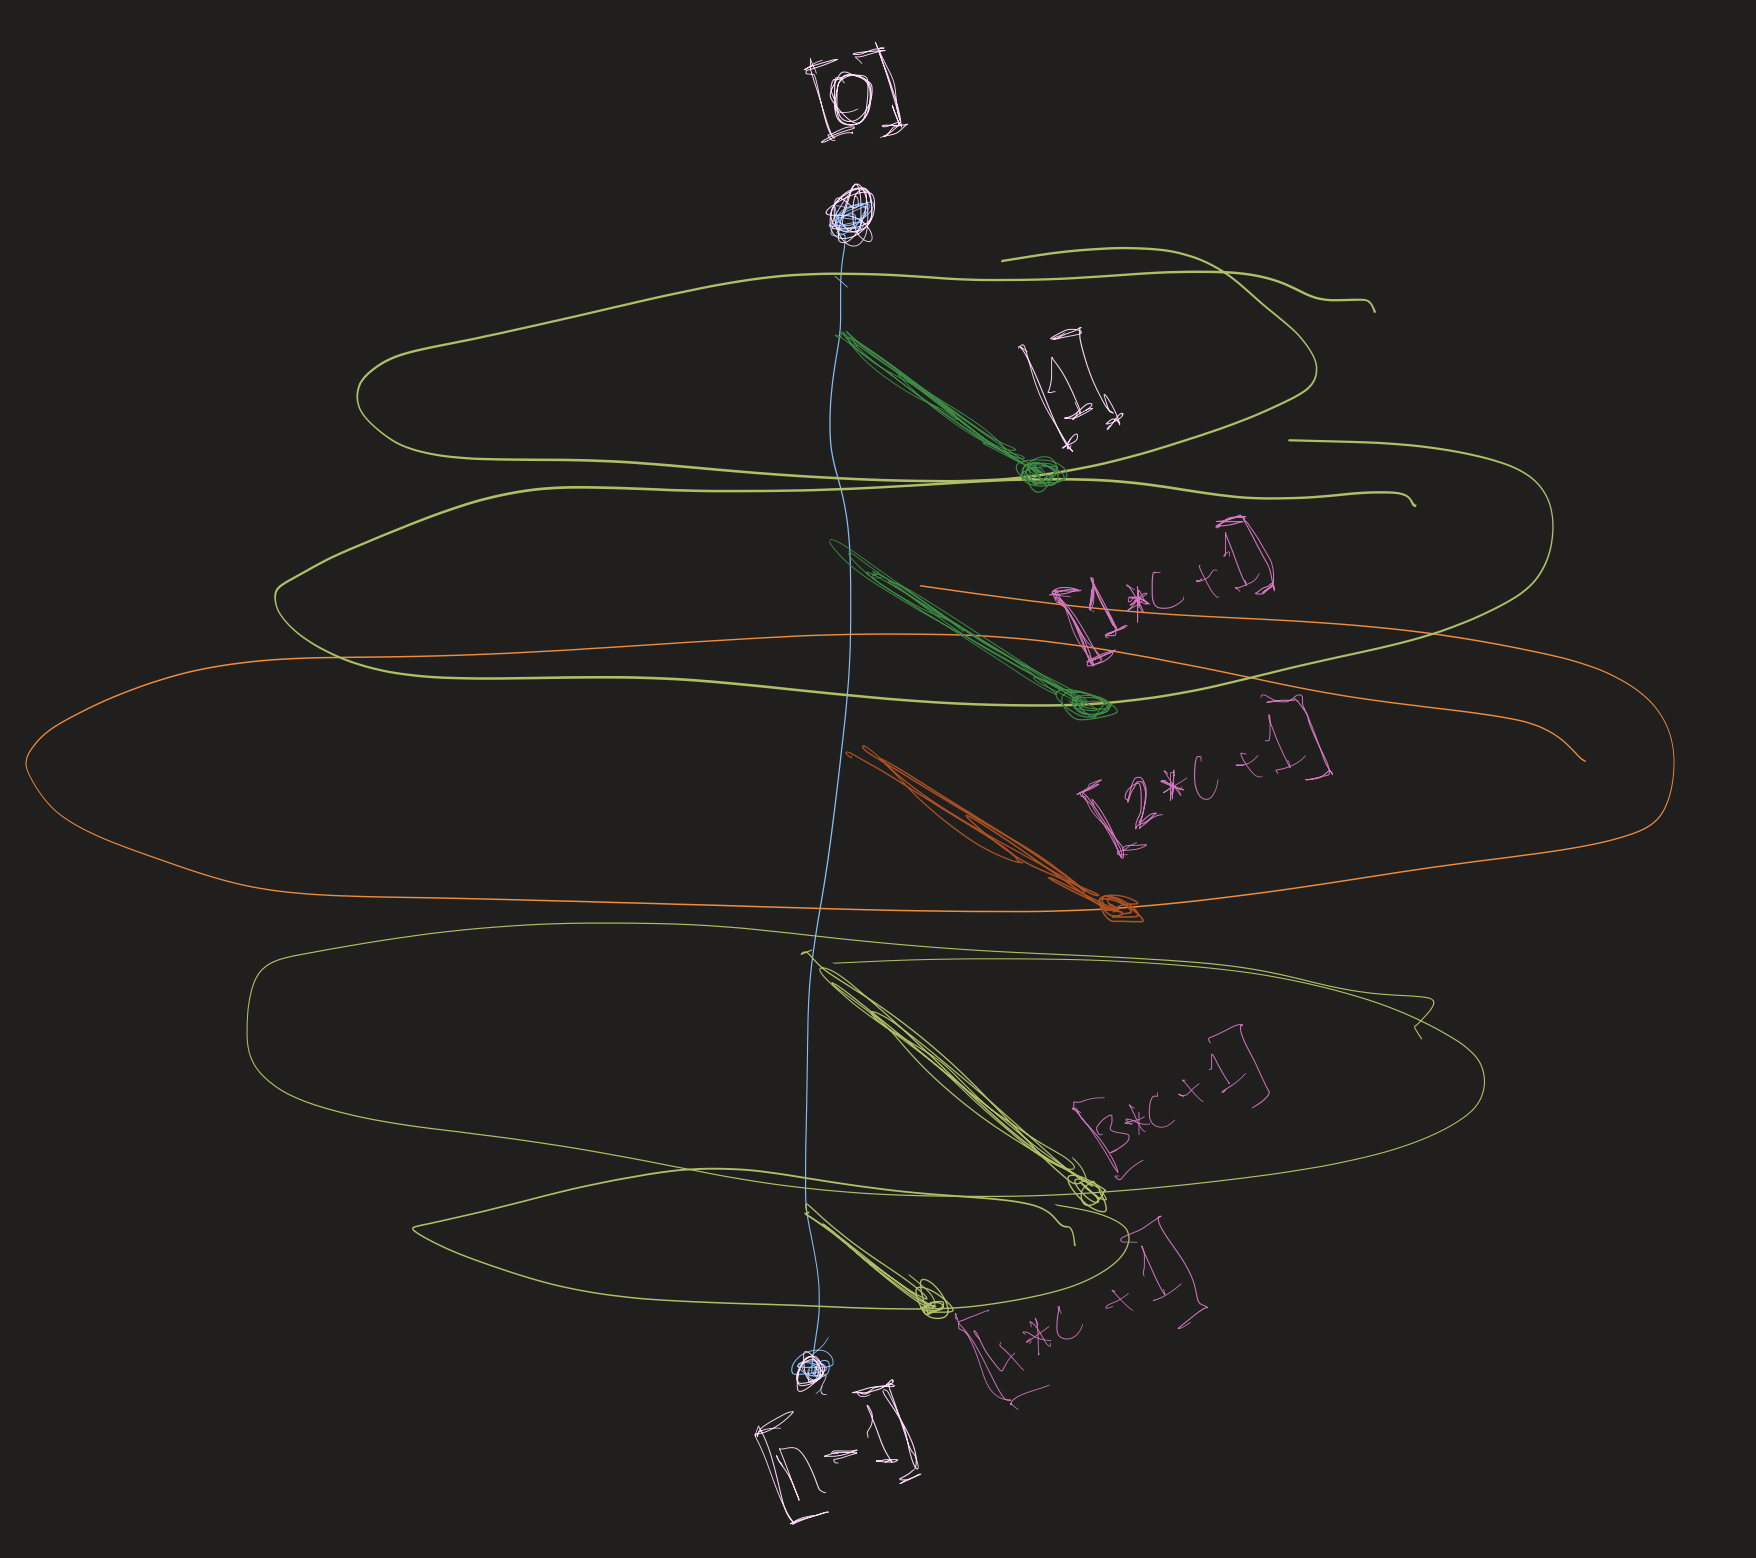 [0]
[1]
[1*C+1]
[2*C+1]
[3*C+1]
[4*C+1]
[n-1]